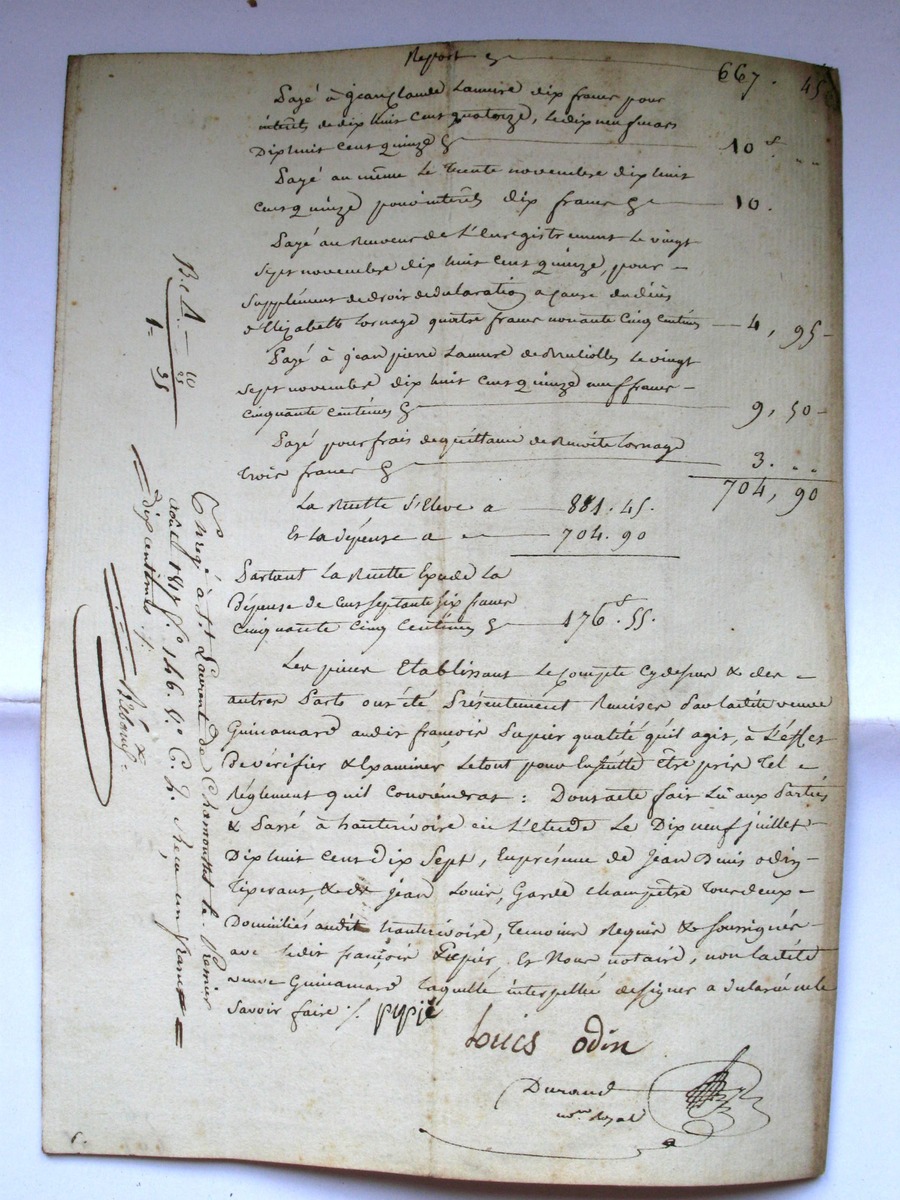 Report 667. 45
Payé à jean claude Lamure dix francs pour
interêts de dix huit cent quatorze, le dix neuf mars
Dix huit cent quinze 10 f. ,,
Payé au même le trente novembre dix huit
cent quinze pour interêts dix francs 10.
Payé au Receveur de l'Enregistrement le vingt
sept novembre dix huit cent quinze, pour
supplément de droit de déclaration a cause du décès
d'Elizabeth Tornage quatre francs nonante cinq centimes 4, 95
Payé à jean pierre Lamure de le vingt
sept novembre dix huit cent quinze neuf francs
cinquante centimes 9, 50
Payé pour frais de quittance de Benoite Tornage
trois francs 3. ,,
704, 90
La Recette s'Eleve a 881. 45.
Et la dépense a 704. 90
Partant La Recette Excede la
Dépense de cent septante six francs
cinquante cinq centimes 176 f. 55.
Les pieces Etablissant le compte cy dessus & des
autres parts ont été Présentement Remises par laditte veuve
Guinamard audit françois Pupier qualité qu'il agit, à l'effet
de vérifier & Examiner le tout pour Ensuitte Être pris tel
Réglement qu'il conviendrat : Dont acte fait Lu aux parties
& Passé à hauterivoire en L'etude le Dix neuf juillet
Dix huit cent dix sept, En présence de jean Denis odin
Tixerant, & de jean Louis, Garde champêtre tous deux
Domiciliés audit hauterivoire, Temoins Requis & soussignés
avec ledit françois Pupier et Nous notaire, non laditte
veuve Guinamard laquelle interpellée de signer a declaré ne le
savoir faire ./. pupie
Louis odin
Durand
nore Royal
10
25
1- 35
Enregé à St Laurent de Chamousset le Premier
août 1817 fo 146. Vo C. 7. Recu un franc
dix centimes ./.